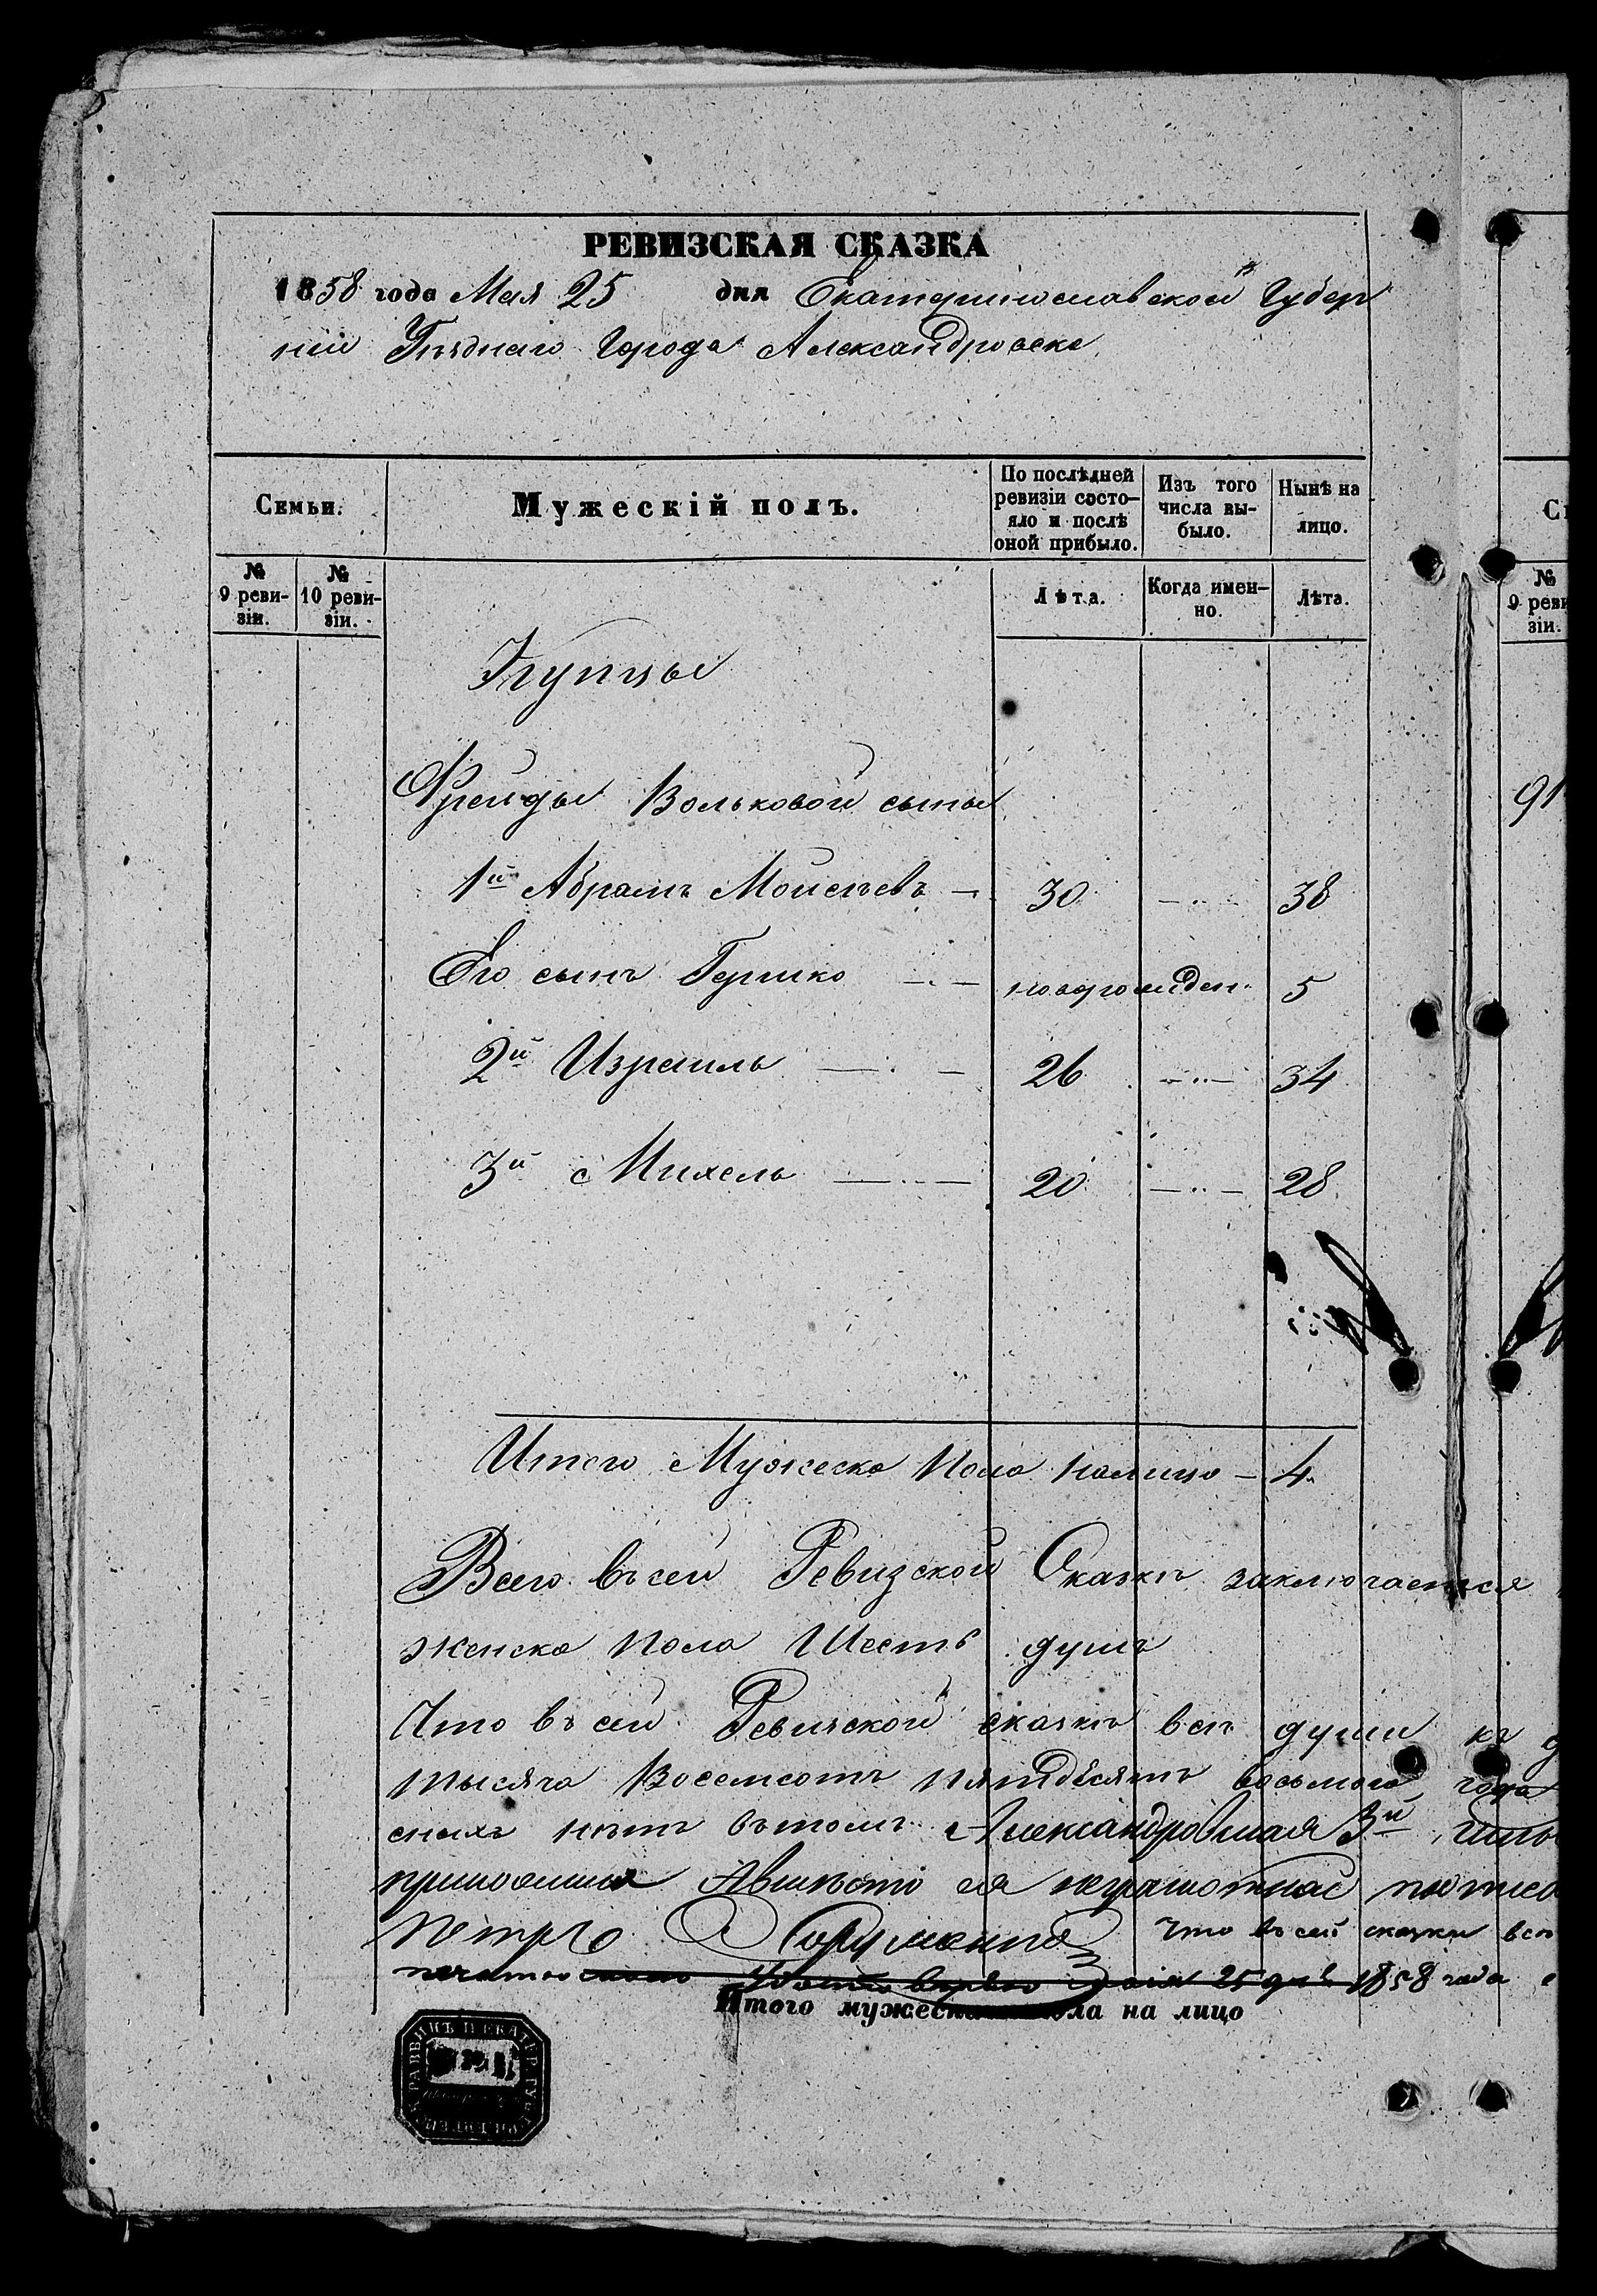 РЕВИЗСКАЯ СКАЗКА
1858 года Мая 25 дня Екатеринославской Губер
нiи Уѣзднаго Города Александровска
Семьи. Мужескiй полъ. По послѣдней ревизiи состо-яло и послѣ оной прибыло. Изъ того числа вы-было. Нынѣ на лицо.
№ 9 реви-зiи. № 10 реви-зiи. Лѣта. Когда имен-но. Лѣта.
№ 9 реви зiи.
Купцы
Фрейды Вольковой сыны 91
1й Абрамъ Моисѣевъ — 30 — 38
Его сынъ Гершко — новорожден. 5
2й Израиль — 26 — 34
3й Михель — 20 — 28
Итого Мужеска Пола налицо — 4
Всего въ сей Ревизской Сказкѣ заключается
женска Пола Шесть душъ
Что въ сей Ревизской сказкѣ всѣ души къ
тысяча Восемсотъ пятдесятъ восьмого года
нѣтъ въ томъ Александровская 3й
неграмотная
Петръ Что въ сей сказки всѣ
печатью 25 дня 1858 года
Итого мужеска пола на лицо